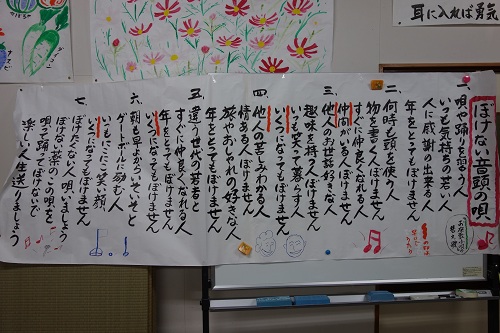 耳に入れば勇気
ぼけない音頭の唄
一、唄や踊りを習う人
いつも気持ちの若い人
人に感謝の出来る人
年をとってもぼけません
二、何時も頭を使う人
物を書く人ぼけません
仲間がいる人ぼけません
すぐに仲良くなれる人
三、他人のお世話好きな人
趣味を持つ人ぼけません
いつも笑って暮らす人
いくつになってもぼけません
四、他人の苦しみわかる人
情ある人ぼけません
旅やおしゃれの好きな人
年をとってもぼけません
五、違う世代の若者と
すぐに仲良くなれる人
年をとってもぼけません
いくつになってもぼけません
六、朝も早よからいそいそと
ゲートボールに励む人
いつもにこにこ笑顔人
いくつになってもぼけません
七、ぼけたくない人唄いましょう
ぼけない薬のこの唄を
唄って踊ってぼけないで
楽しい人生送りましょう